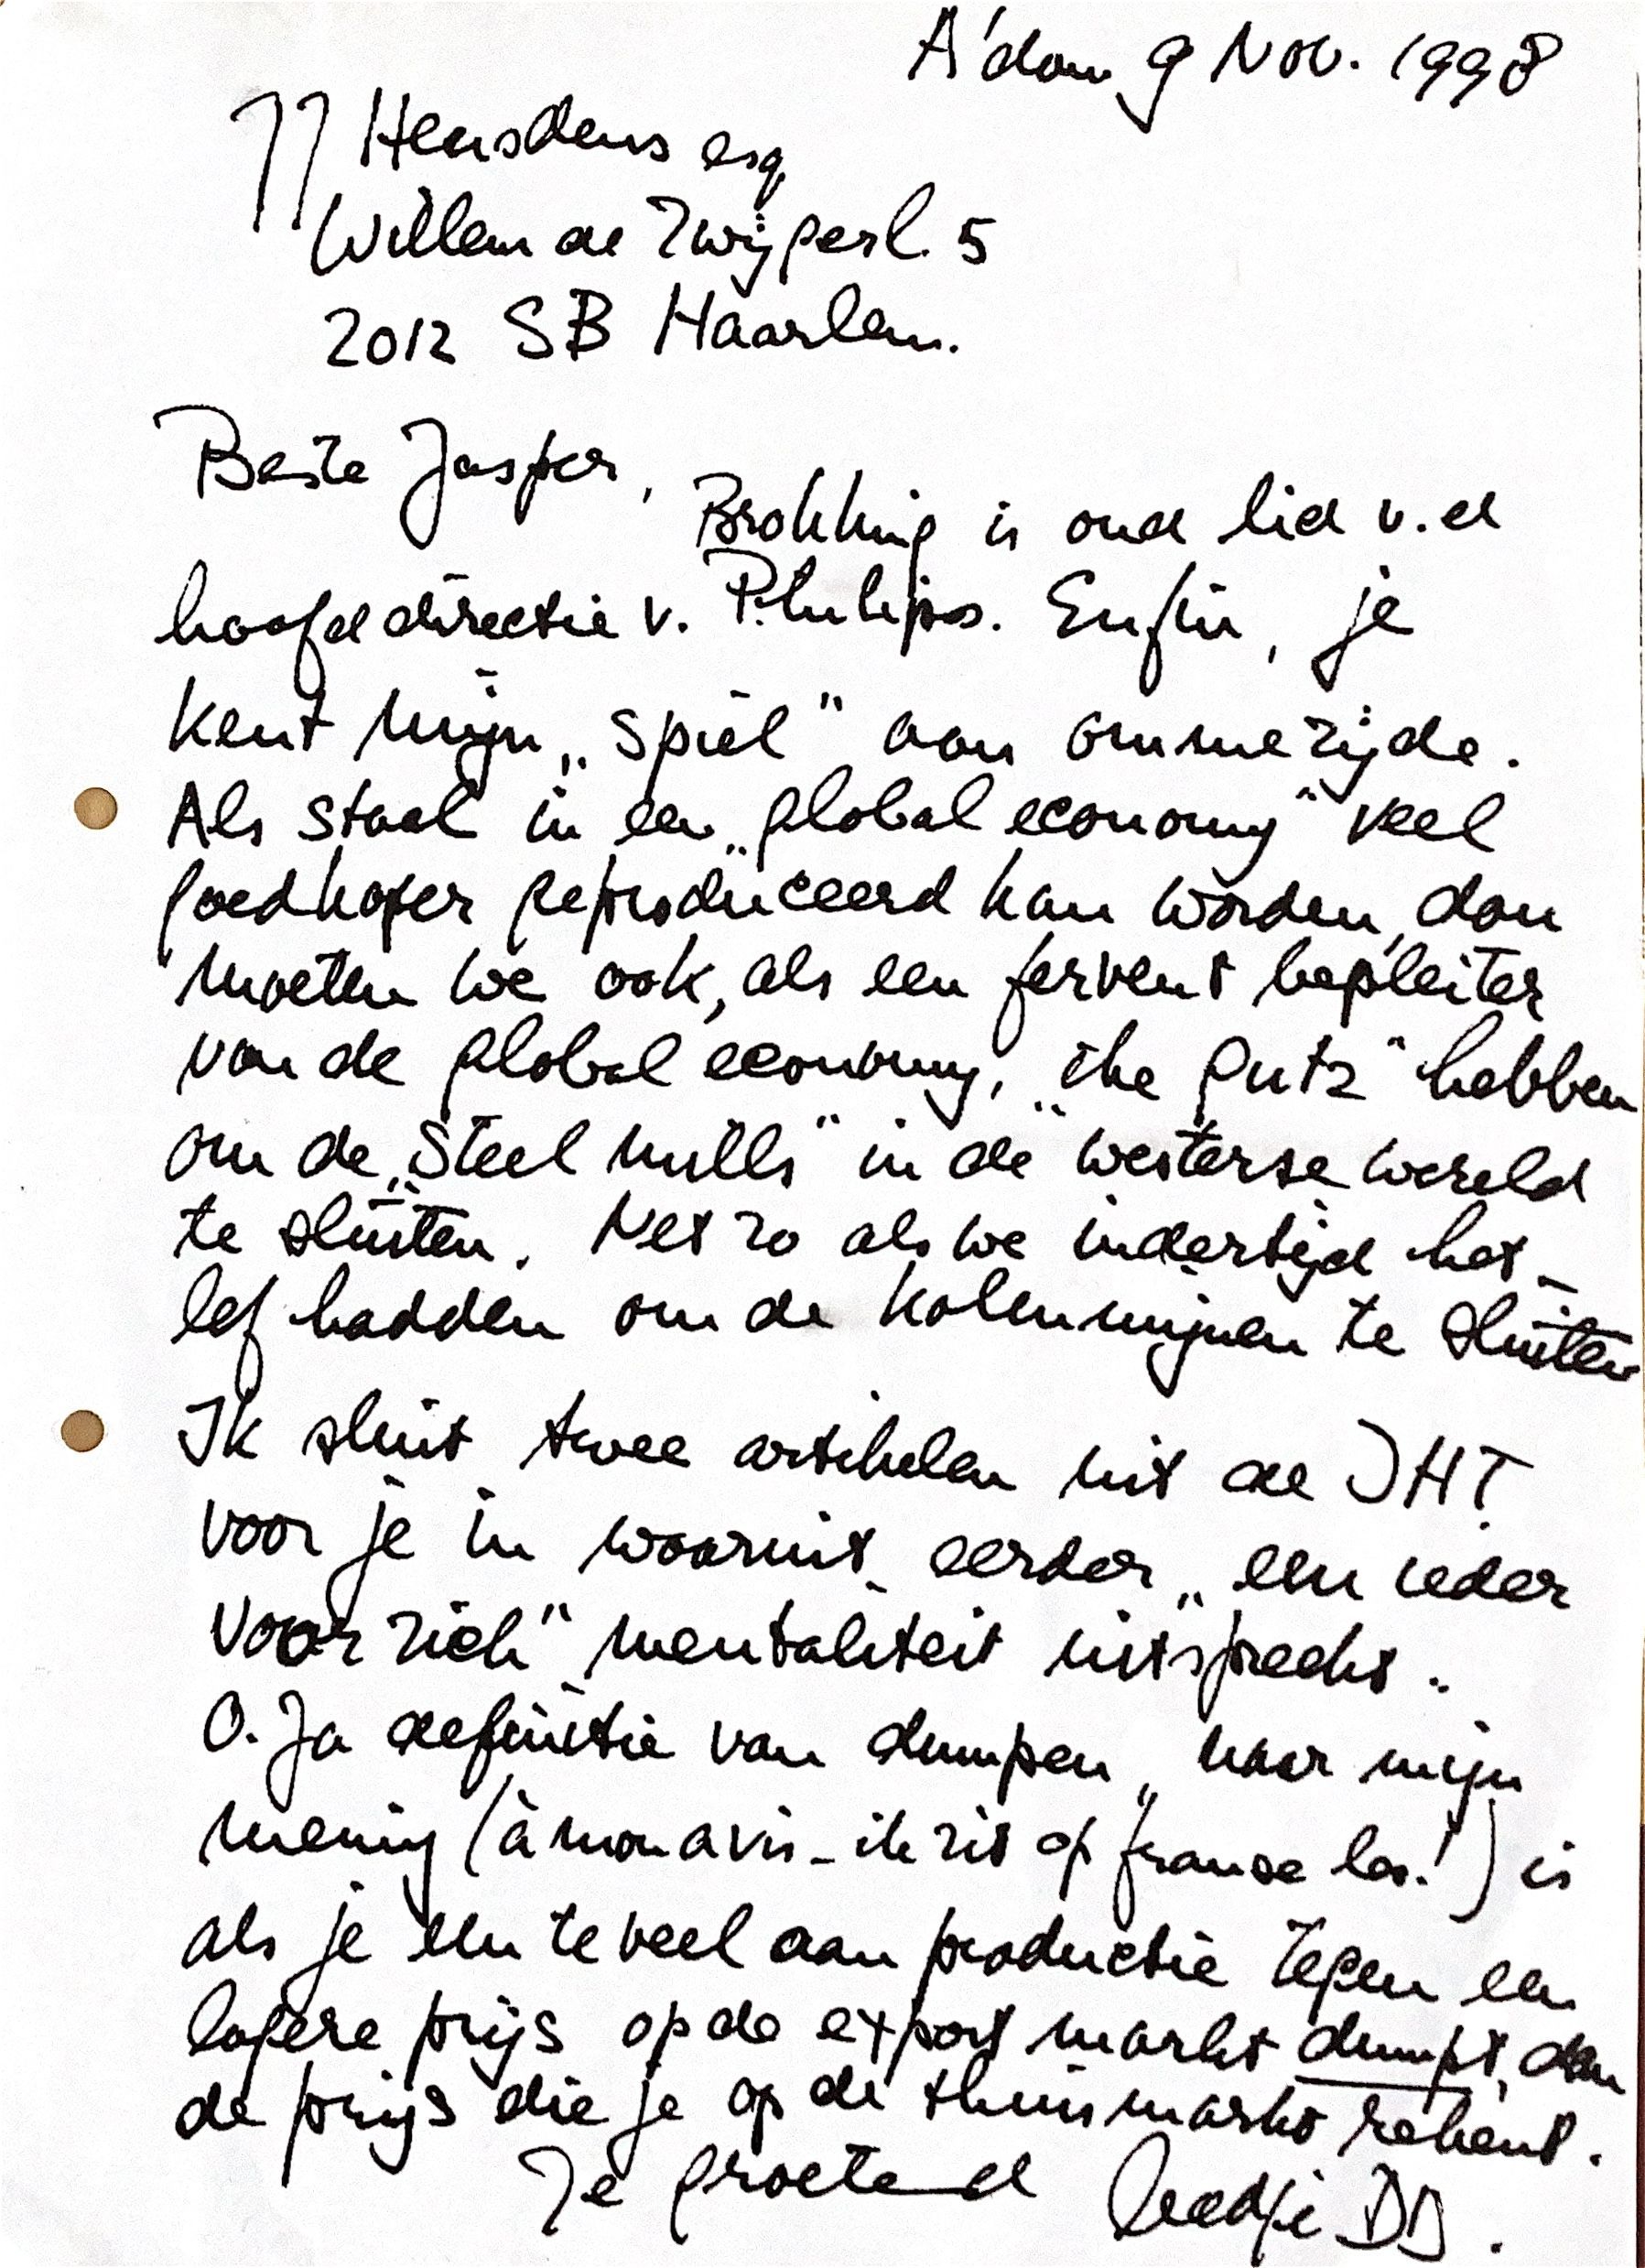 A'dam 9 Nov. 1998
JJ Heusdens esq.
Willem de Zwijgerl. 5
2012 SB Haarlem.
Beste Jasper,
Brokking is oud lid v.d
hoofddirectie v. Philips. Enfin, je
kent mijn „spiel" aan ommezijde.
Als staal in een „global economy" veel
goedkoper geproduceerd kan worden, dan
moeten we ook, als een fervent bepleiter
van de global economy, „the gutz" hebben
om de „Steel mills" in de westerse wereld
te sluiten. Net zo als we indertijd het
lef hadden om de kolenmijnen te sluiten
Ik sluit twee artikelen uit de IHT
voor je in waaruit eerder „een ieder
voor zich" mentaliteit uitspreekt.
O. Ja definitie van dumpen, naar mijn
mening (à mon avis - ik zit op franse les!) is
als je een te veel aan productie tegen een
lagere prijs op de export markt dumpt, dan
de prijs die je op de thuismarkt rekent.
Je groetend DD.